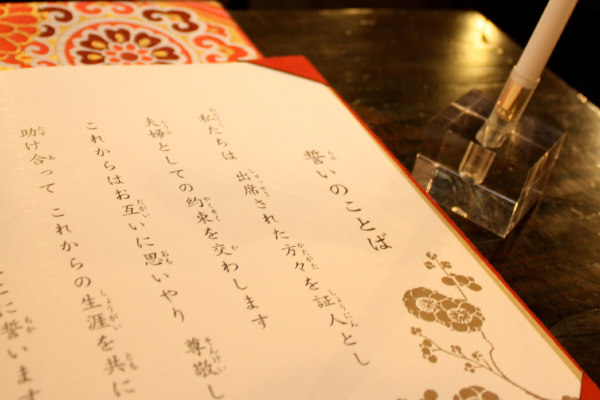 誓いのことば
私たちは 出席された方々を証人とし
夫婦としての約束を交わします
これからはお互いに思いやり 尊敬し
助け合って これからの生涯を共に
に誓います